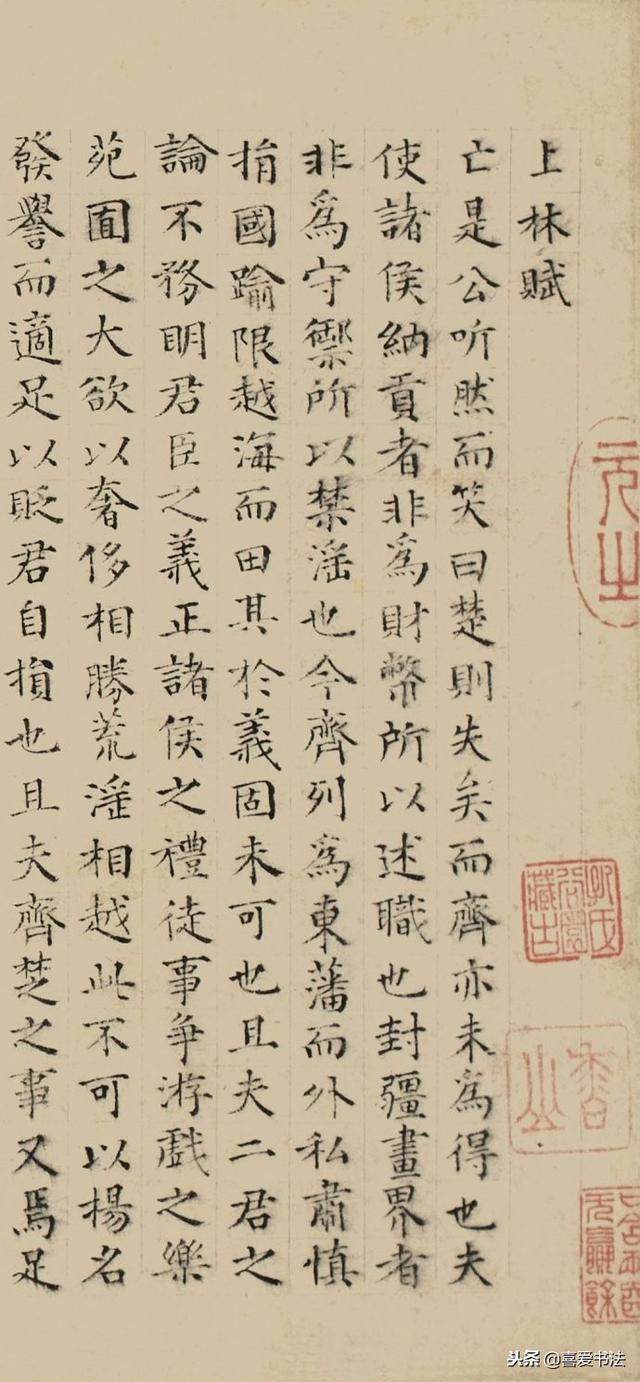 上林賦
亡是公听然而笑曰楚則失矣而齊亦未為得也夫
使諸侯納貢者非為財幣所以述職也封疆畫界者
非為守禦所以禁淫也今齊列為東藩而外私肅慎
捐國踰限越海而田其於義固未可也且夫二君之
論不務明君臣之義正諸侯之禮徒事爭游戲之樂
苑囿之大欲以奢侈相勝荒淫相越此不可以揚名
發譽而適足以貶君自損也且夫齊楚之事又焉足
头条 @喜爱书法